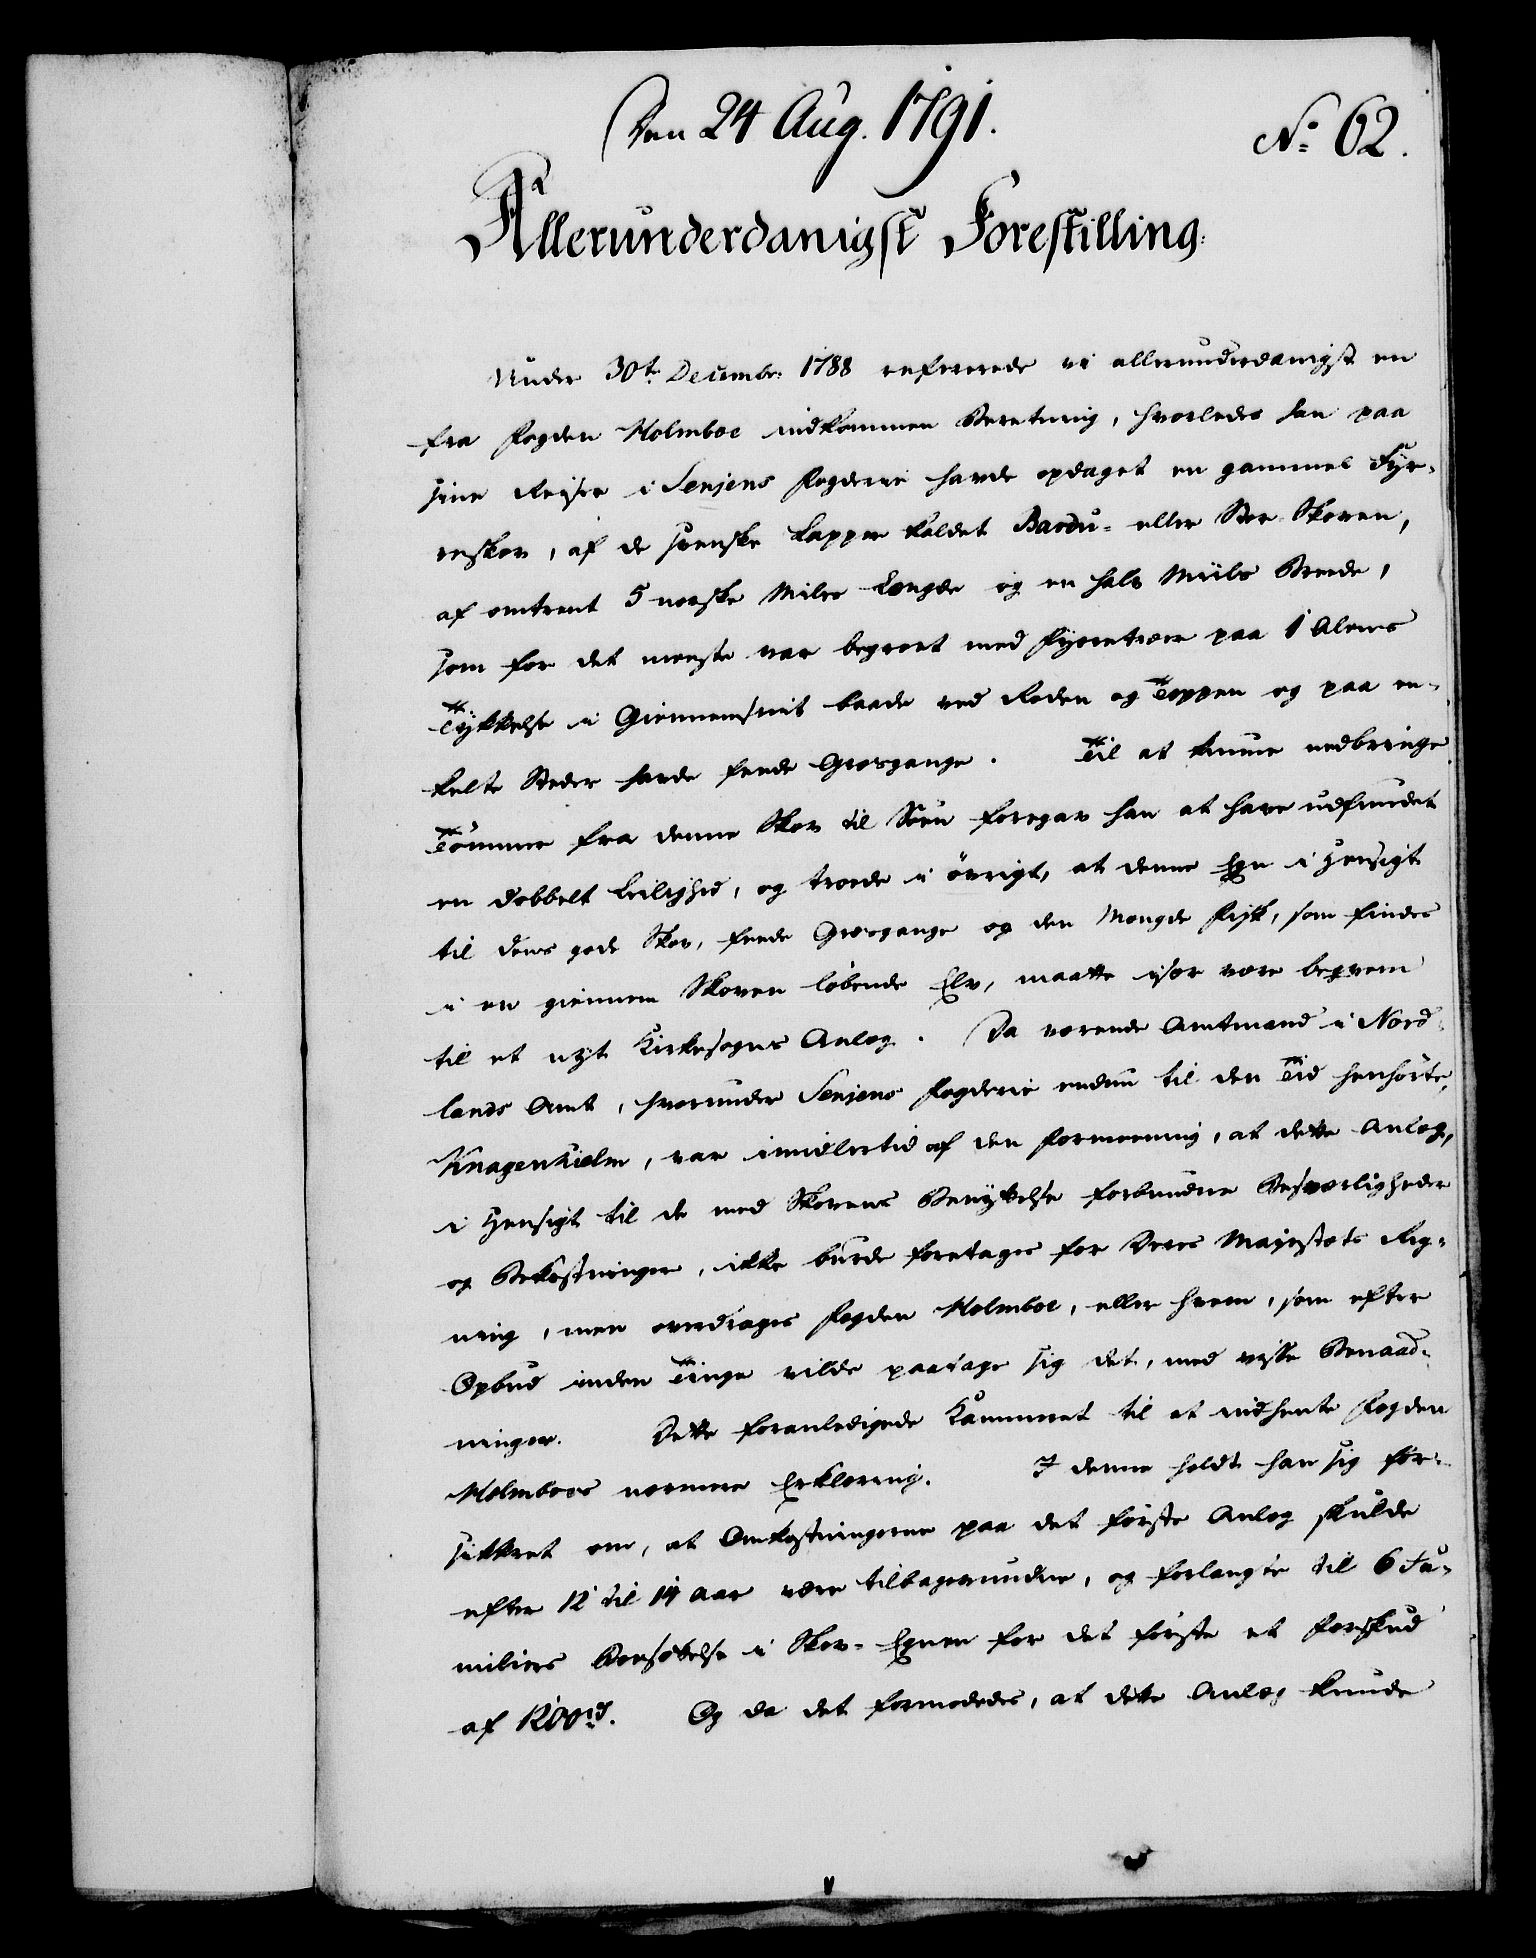 Den 24 Aug. 1791.
No 62.
Allerunderdanigst Forestilling.
Under 30te Decembr: 1788 refererede vi allerunderdanigst en
fra Fogden Holmboe indkommen Beretning, hvorledes han paa
sine Reiser i Senjens Fogderie havde opdaget en gammel Fyr-
reskov, af de svenske Lapper kaldet Bardu- eller Stor-Skoven,
af omtrent 5 norske Miles Længde og en halv Miils Brede,
som for det meeste var begroet med Fyrretræer paa 1 Alens
Tykkelse i Giennemsnit baade ved Roden og Toppen og paa en-
kelte Steder havde feede Græsgange. Til at kunne nedbringe
Tömmer fra denne Skov til Söen foregav han at have udfundet
en dobbelt Leilighed, og troede i övrigt, at denne Egn i Hensigt
til dens gode Skov, feede Græsgange og den Mængde Fisk, som findes
i en giennem Skoven löbende Elv, maatte især være beqvem
til et nyt Kirkesogns Anlæg. Da værende Amtmand i Nord-
lands Amt, hvorunder Senjens Fogderie endnu til den Tid henhörte,
Knagenhielm, var imidlertid af den Formeening, at dette Anlæg,
i Hensigt til de med Skovens Benyttelse forbundne Besværligheder
og Bekostninger, ikke burde foretages for Deres Majestæts Reg-
ning, men overdrages Fogden Holmboe, eller hvem, som efter
Opbud inden Tinge vilde paatage sig det, med visse Benaad-
ninger. Dette foranledigede Kammeret til at indhente Fogden
Holmboes nærmere Erklæring. I denne holdt han sig for-
sikkret om, at Omkostningerne paa det förste Anlæg skulde
efter 12 til 14 Aar være tilbagevundne, og forlangte til 6 Fa-
miliers Bonsættelse i Skov-Egnen for det förste et Forskud
af 1200 rd. Og da det formodedes, at dette Anlæg kunde